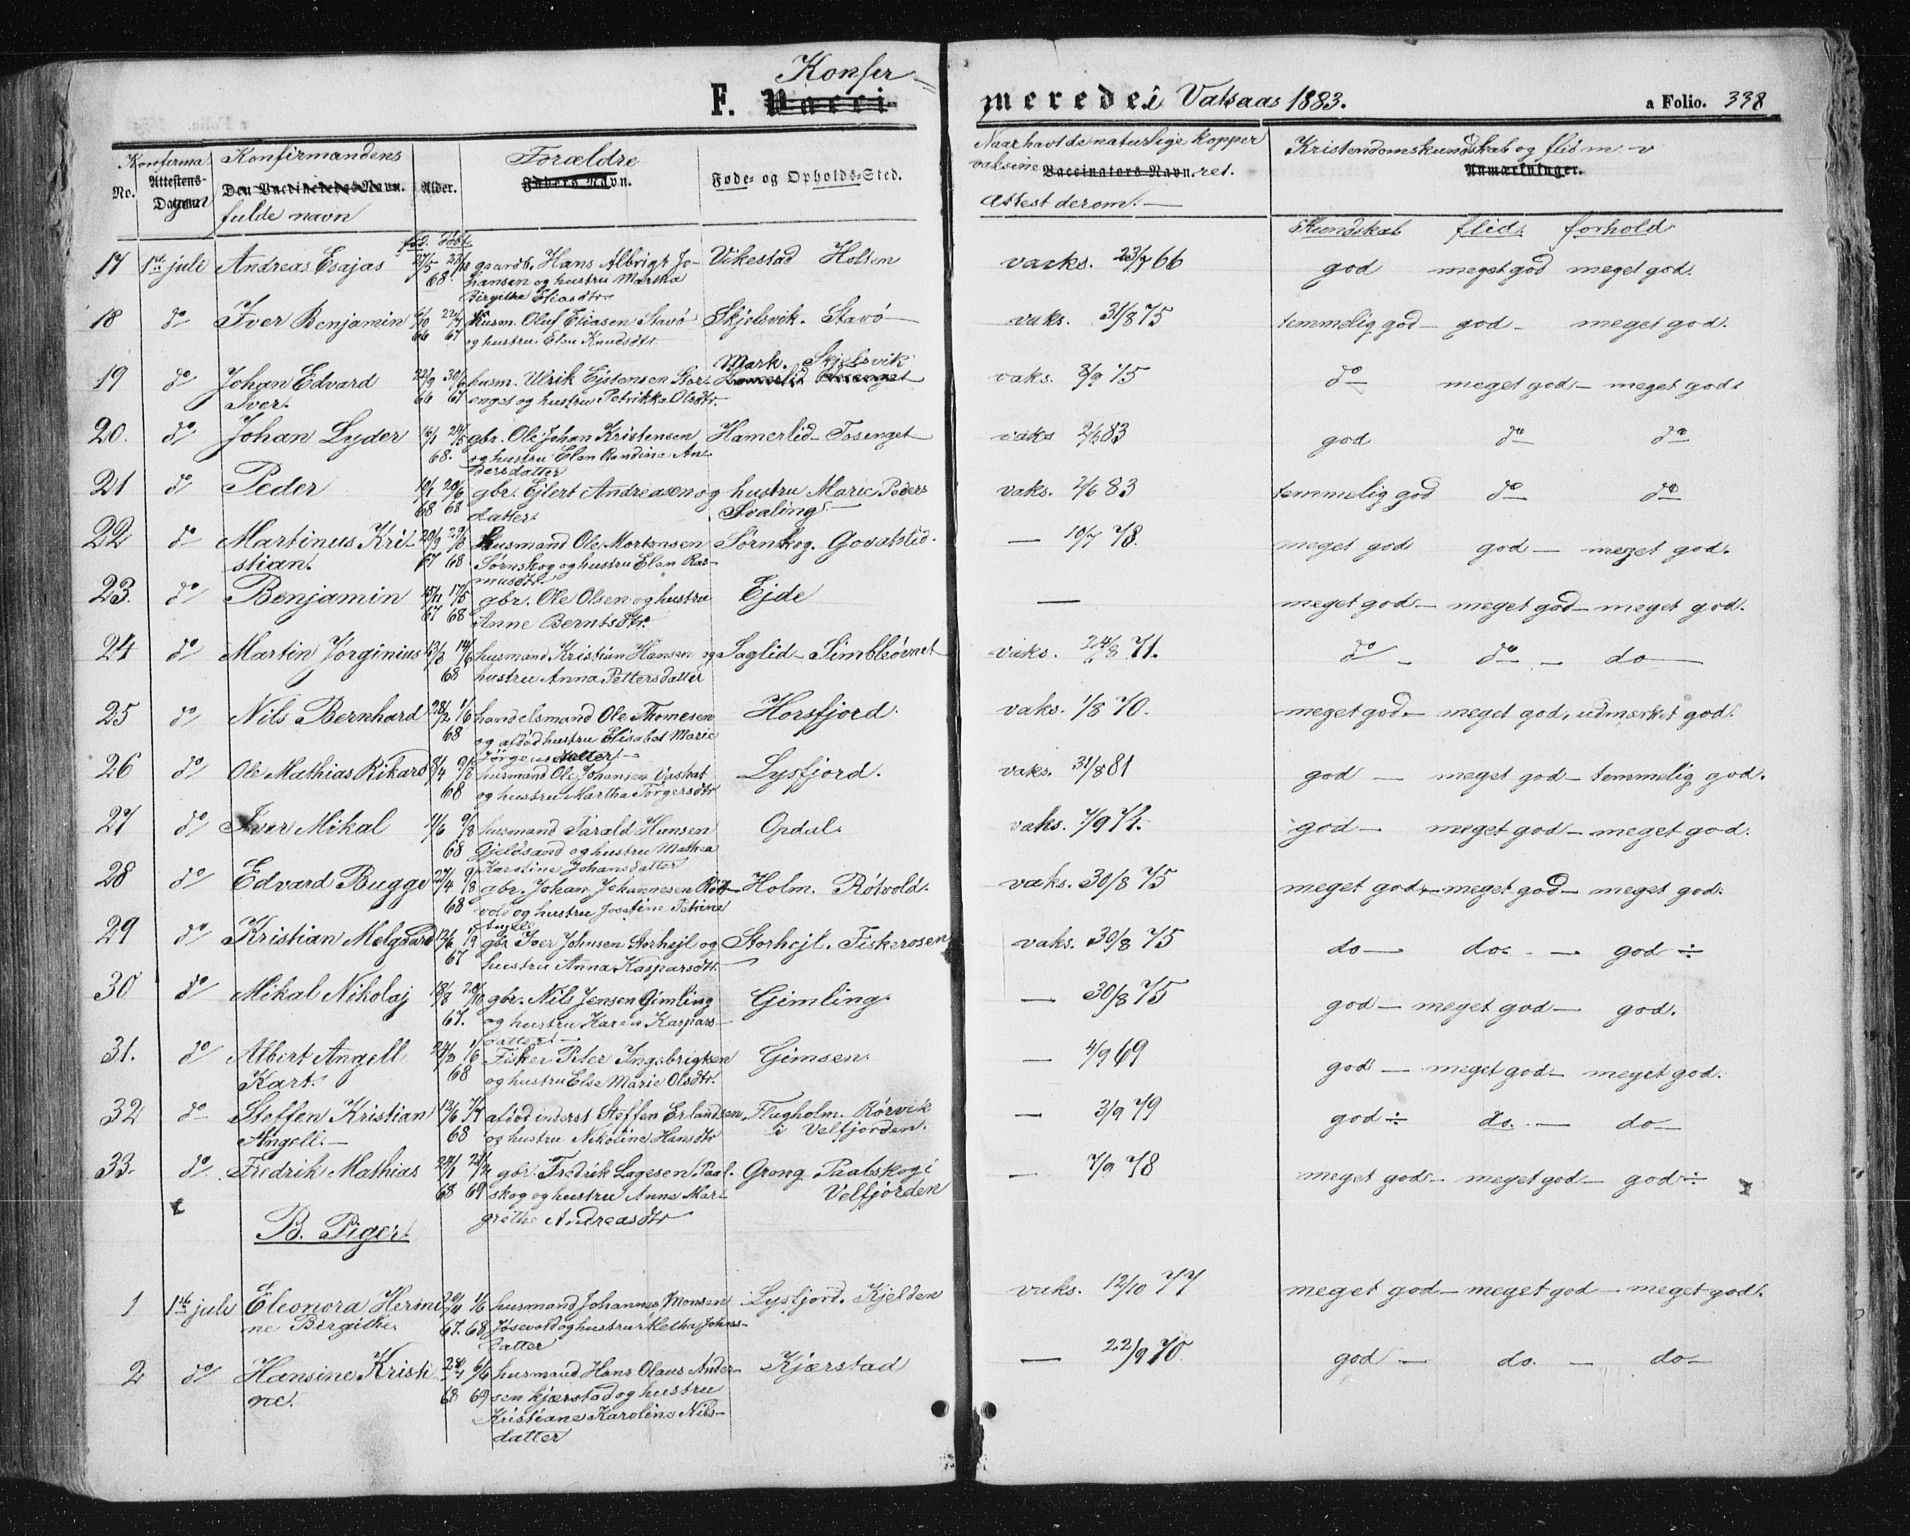 Konfer-
F. Vacci-
merede i Vatsaas 1883.
a Folio. 338
No. Konfirma Attestens- Datum
Konfirmandens Den Vaccineredes Navn. fulde navn
Alder.
Forældre Faders Navn.
Føde- og Opholds-Sted.
Naar havt de naturlige kopper
vaksine Vaccinators Navn. ret.
Attest derom. —
Kristendomskundskab og flid m. v
Anmærkninger.
Kundskab flid. forhold
fød. døbt
17 1ste juli Andreas Esajas 27/5 68. gaardb. Hans Albrigt Jo- Vikestad Holsen vaks. 23/7 66 god meget god meget god.
hansen og hustru Martha
Birgithe Eliasdtr.
18 do Iver Benjamin 66 67 husm. Oluf Eliasen Stavø Skjelsvik. Stavø vaks. 31/8 75 temmelig god — god — meget god.
og hustru Elen Knudsdtr.
19 do Johan Edvard 22/9 30/6 husm. Ulrik Ejstensen Stor- Mark. Skjelsvik vaks. 8/9 75 do — meget god — meget god.
Iver. 66 67 enget og hustru Petrikka Olsdtr. Hamerlid Tosenget
20. do Johan Lyder 16/1 24/5 gbr. Ole Johan Kristensen Hamerlid — Tosenget vaks 2/6 83 god do do
68. og hustru Elen Randine An-
dersdatter
21 do Peder 10/1 20/6 gbr. Ejlert Andreasen og hustru Marie Peders vaks. 2/6 83 temmelig god do do
68 68 datter Svaling —
22 do Martinus Kri- 20/9 29/8 husmand Ole Mortensen Sørnskog. Govatslid. — 10/7 78. meget god god — meget god.
stian. 67 68 Sørnskog og hustru Elen Ras-
musdtr.
23. do Benjamin 15/11 17/5 gbr. Ole Olsen og hustru Ejde — meget god — meget god — meget god.
67 68 Anne Berntsdtr.
24 do Martin Jørginius 13/3 14/6 husmand Kristian Hansen og Saglid — Simblesøvnet vaks. 24/8 71. do — do — do —
68 hustru Anna Pettersdatter
25 do Nils Bernhard 28/2 1/6 handelsmand Ole Thomesen Horsfjord. vaks. 1/8 70. meget god — meget god, udmærket god.
68 og afdød hustru Elisabet Marie
Jørgensdatter —
26 do Ole Mathias Rikard 8/4 9/8 husmand Ole Johansen Lysfjord. vaks. 31/8 81 god — meget god — temmelig god.
68 og hustru Martha Torgersdtr
27 do Iver Mikal 11/6 9/8 husmand Tarald Hansen Opdal. vaks. 7/9 71. god — meget god — meget god.
68 Gjeldsand og hustru Mathea
Karoline Johansdatter
28 do Edvard Bugge 27/4 9/8 gbr. Johan Johannesen Røt- Holm. Røtvold. vaks. 30/8 75 meget god — meget god — meget god.
68 vold og hustru Josefine Petrine
Angell
29 do Kristian Melgaard gbr. Iver Johnsen Storhejl og Storhejl. Fiskerosen vaks. 30/8 75 do — do. — god ÷
67 hustru Anna Kasparsdtr.
30 do Mikal Nikolaj 18/8 20/10 gbr. Nils Jensen Gimling Gimling. — 30/8 75 god — meget god — god.
67. og hustru Karen Kaspars-
datter —
31. do Albert Angell 24/2 1/6 Fisker Peter Ingebrigtsen Gimsen. — 4/9 69 god — meget god — meget god.
Kart. 68 og hustru Else Marie Olsdtr.
32 do Steffen Kristian 13/6 afdød inderst Steffen Erlandsen Flagholm. Rørvik — 3/9 79 god ÷ do. — do —
Angell. — 68 og hustru Nikoline Hansdtr i Velfjorden.
33. do Fredrik Mathias 24/1 21/2 gbr. Fredrik Lagesen Paal- Grong Paalskog i — 7/9 78 meget god — meget god — god ÷
68 69 skog og hustru Anne Mar- Velfjorden
grethe Andreasdtr
B. Piger.
1 1ste juli Eleonora Hermi 20/4 1/6 husmand Johannes Monsen Lysfjord. Kjelden vaks. 12/10 77 meget god — meget god — meget god.
ne Birgithe 67. 68 Jøsevold og hustru Metha Johns-
datter
2 do Hansine Kristi 28/7 6/6 husmand Hans Olaus Ander- Kjærstad — 22/9 70. god — do. — do —
ne. 68 69 sen kjærstad og hustru
Kristiane Karoline Nils-
datter